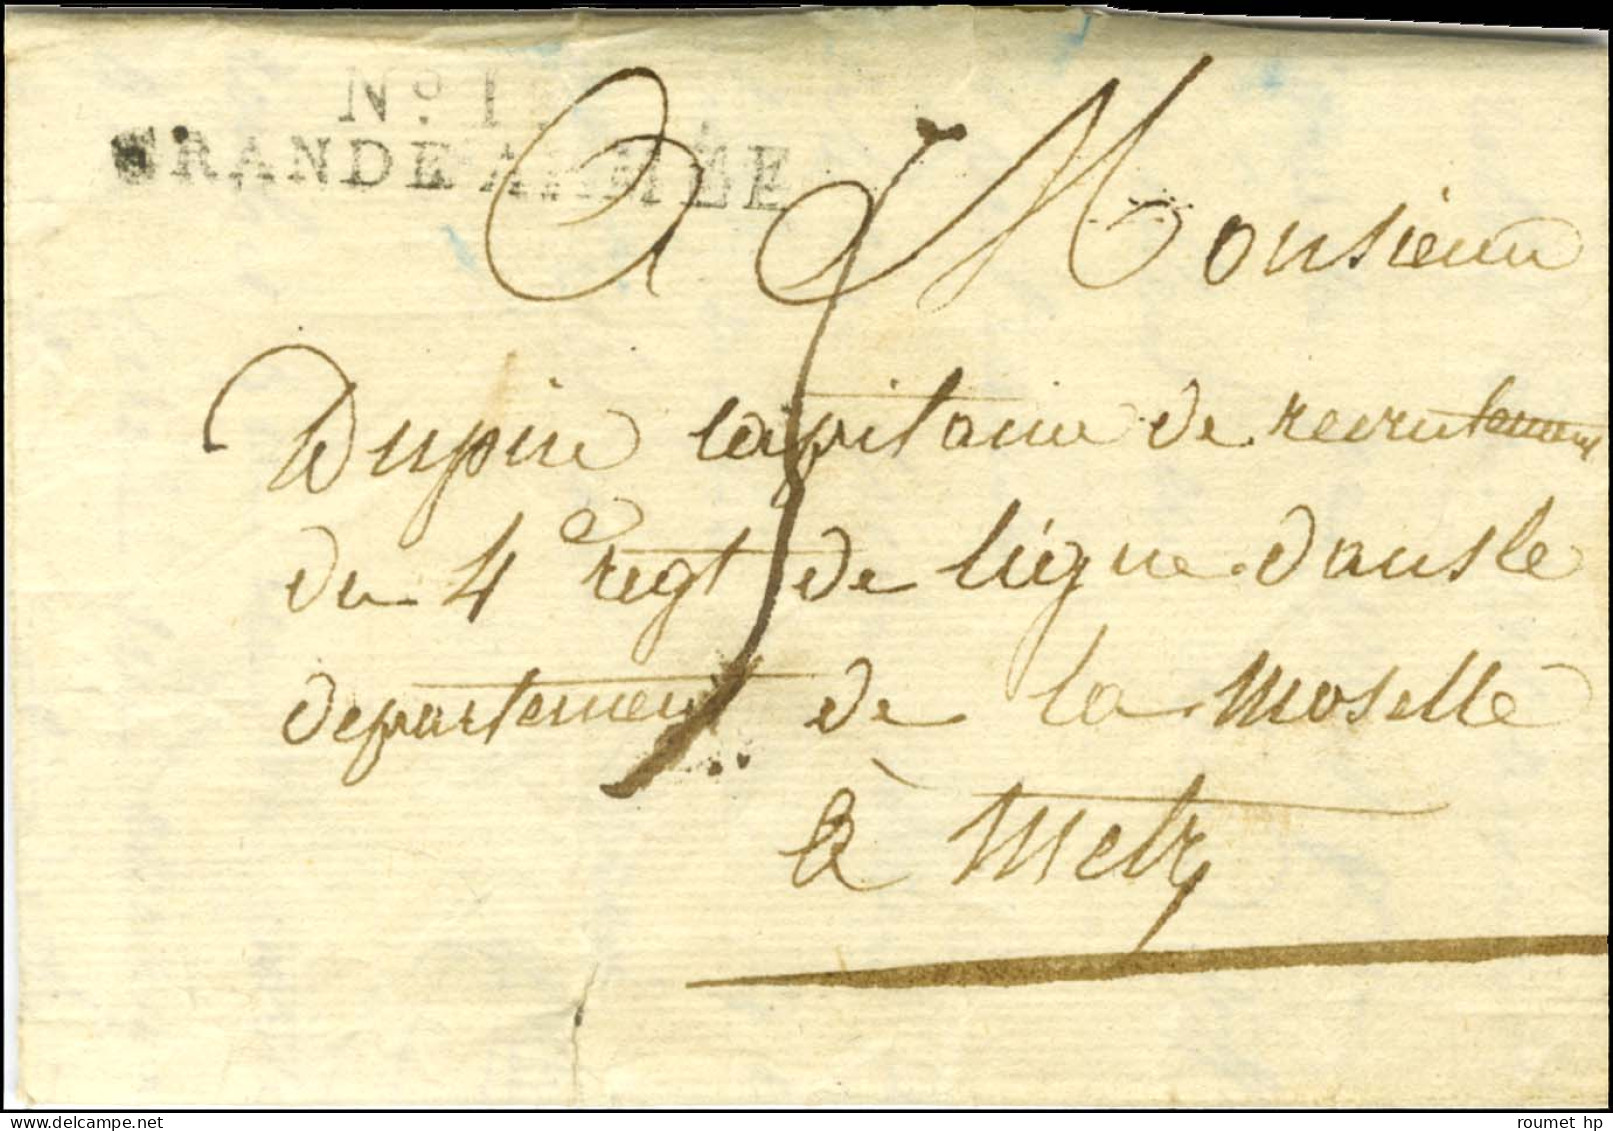 No. 1
GRANDE ARMÉE
A Monsieur
Dupin Capitaine de recrutement
du 4e regt de ligne dans le
departement de la Moselle
à Metz
roumet hp